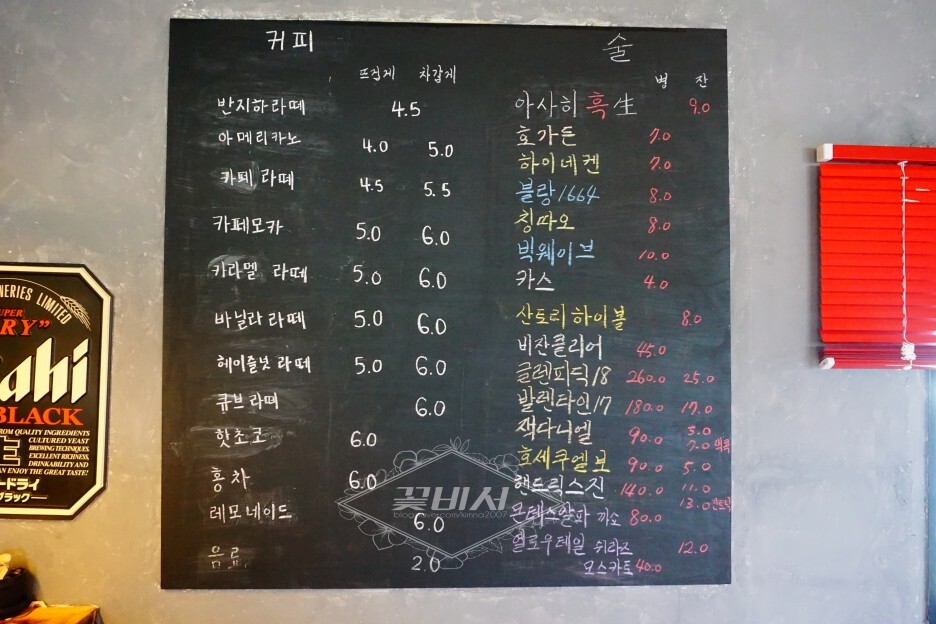 커피
뜨겁게 차갑게
반지하라떼 4.5
아메리카노 4.0 5.0
카페 라떼 4.5 5.5
카페모카 5.0 6.0
카라멜 라떼 5.0 6.0
바닐라 라떼 5.0 6.0
헤이즐넛 라떼 5.0 6.0
큐브라떼 6.0
핫초코 6.0
홍차 6.0
레모네이드 6.0
음료 2.0
술
병 잔
아사히 흑生 9.0
호가든 7.0
하이네켄 7.0
블랑1664 8.0
칭따오 8.0
빅웨이브 10.0
카스 4.0
산토리하이볼 8.0
비잔클리어 45.0
글렌피딕18 260.0 25.0
발렌타인17 180.0 17.0
잭다니엘 90.0 5.0
7.0 잭콕
호세쿠엘보 90.0 5.0
핸드릭스진 140.0 11.0
13.0
콘데스알파 까쇼 80.0
옐로우테일 쉬라즈 12.0
모스카토 40.0
꽃비서
NERIES LIMITED
SUPER
RY"
ahi
BLACK
FROM QUALITY INGREDIENTS
CULTURED YEAST
BREWING TECHNIQUES
EXCELLENT RICHNESS,
DRINKABILITY AND
AN ENJOY THE GREAT TASTE!
ードライ
ブラック